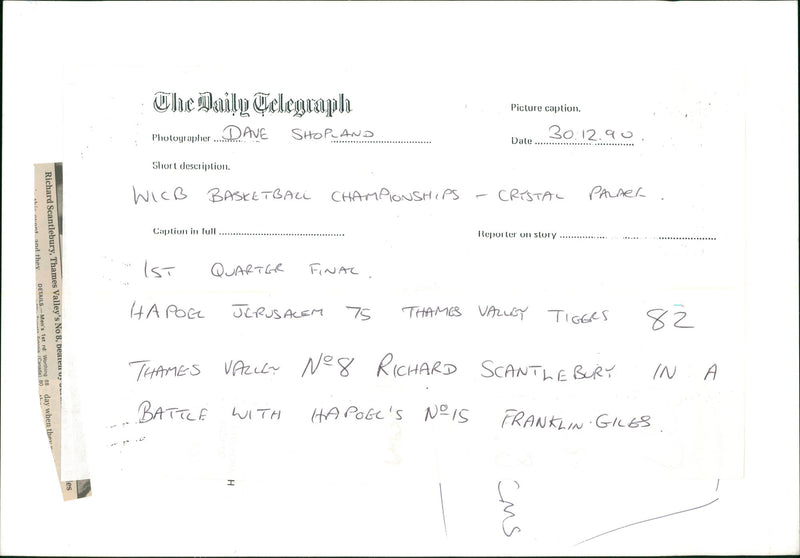 The Daily Telegraph
Picture caption.
Photographer DAVE SHOPLAND
Date 30.12.90.
Short description.
WICB BASKETBALL CHAMPIONSHIPS - CRYSTAL PALACE.
Caption in full
Reporter on story
1ST QUARTER FINAL.
HAPOEL JERUSALEM 75 THAMES VALLEY TIGERS 82
THAMES VALLEY Nº8 RICHARD SCANTLEBURY IN A
BATTLE WITH HAPOEL'S Nº15 FRANKLIN GILES.
Richard Scantlebury, Thames Valley's No 8, beaten
and they
DETAILS.—Men's 1st rd: Worthing 88
day when
H